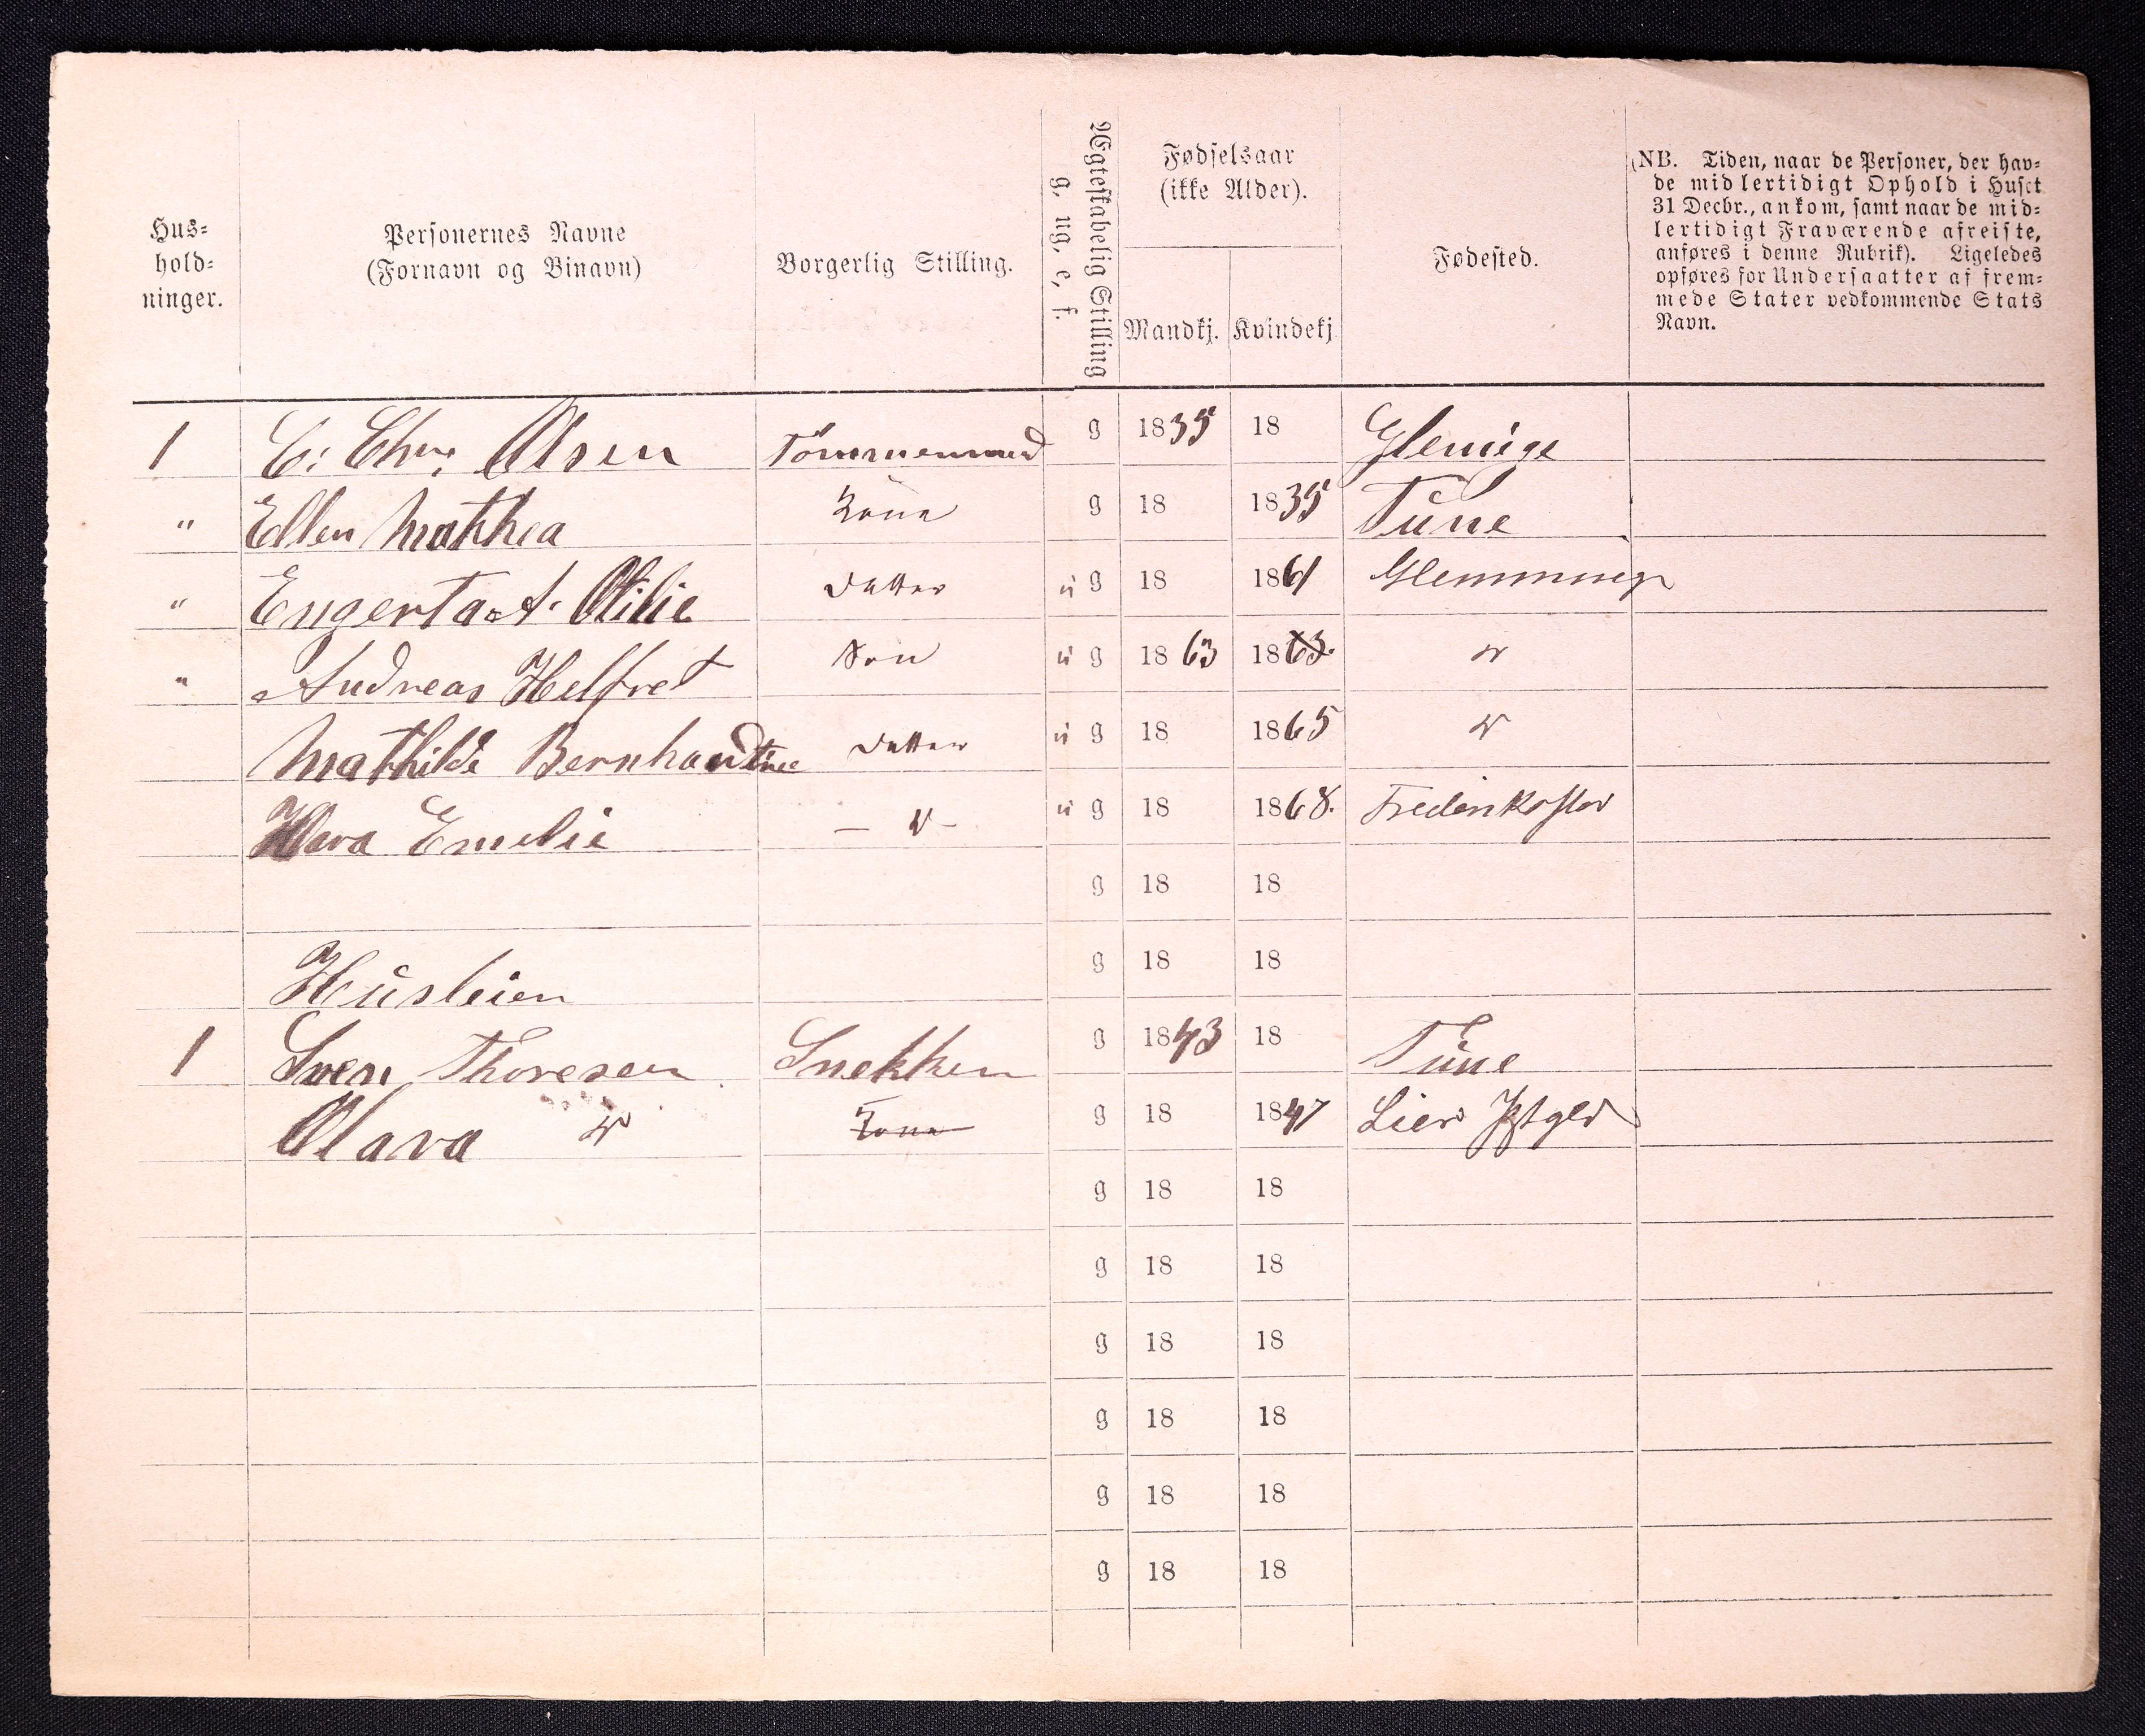 Hus=
hold=
ninger.
Personernes Navne
(Fornavn og Binavn)
Borgerlig Stilling.
Ægteskabelig Stilling
g, ug, e, f.
Fødselsaar
(ikke Alder).
Mandkj. Kvindekj
Fødested.
(NB. Tiden, naar de Personer, der hav=
de midlertidigt Ophold i Huset
31 Decbr., ankom, samt naar de mid=
lertidigt Fraværende afreiste,
anføres i denne Rubrik). Ligeledes
opføres for Undersaatter af frem=
mede Stater vedkommende Stats
Navn.
1 Chr. Olsen Tömmermand g 1835 18 Glemige
" Ellen Mathea Kone g 18 1835 Tune
" Engerta A. Otilie Datter ug 18 1861
" Andreas Helfret Søn ug 1863 1863. "
Mathilde Bernhardine Datter ug 18 1865 "
Klara Emelie — " — ug 18 1868.
g 18 18
Husleien g 18 18
1 Sven Thoresen Snekker g 1843 18 Tune
Olava " Kone g 18 1847 Lier
g 18 18
g 18 18
g 18 18
g 18 18
g 18 18
g 18 18